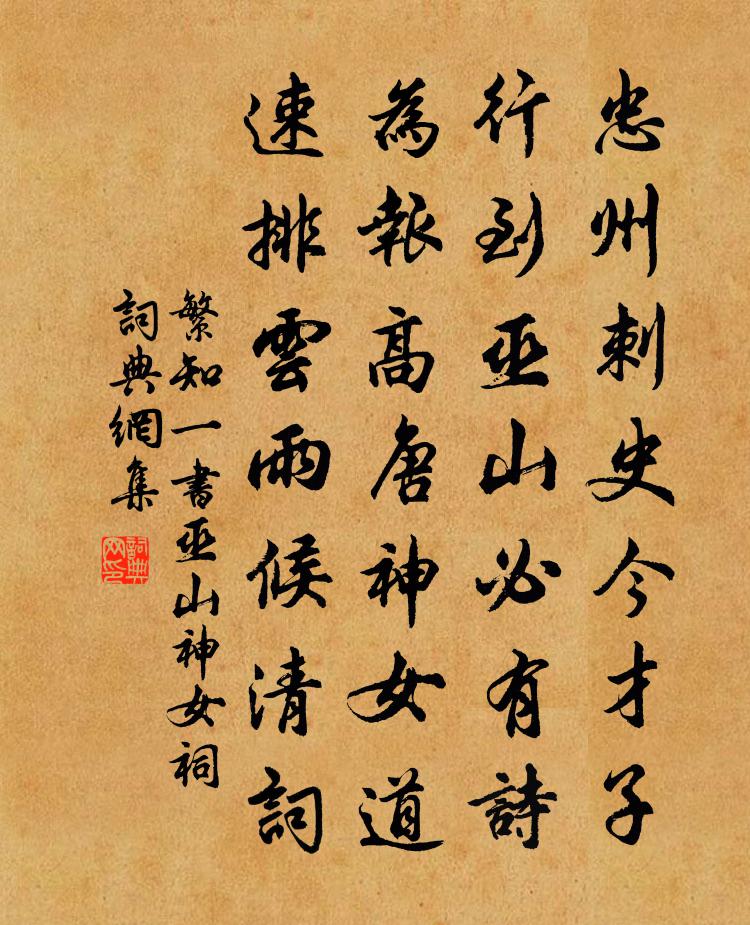 忠州刺史今才子
行到巫山必有詩
為報高唐神女道
速排雲雨候清詞
繁知一書巫山神女祠
詞典網集
詞典网印